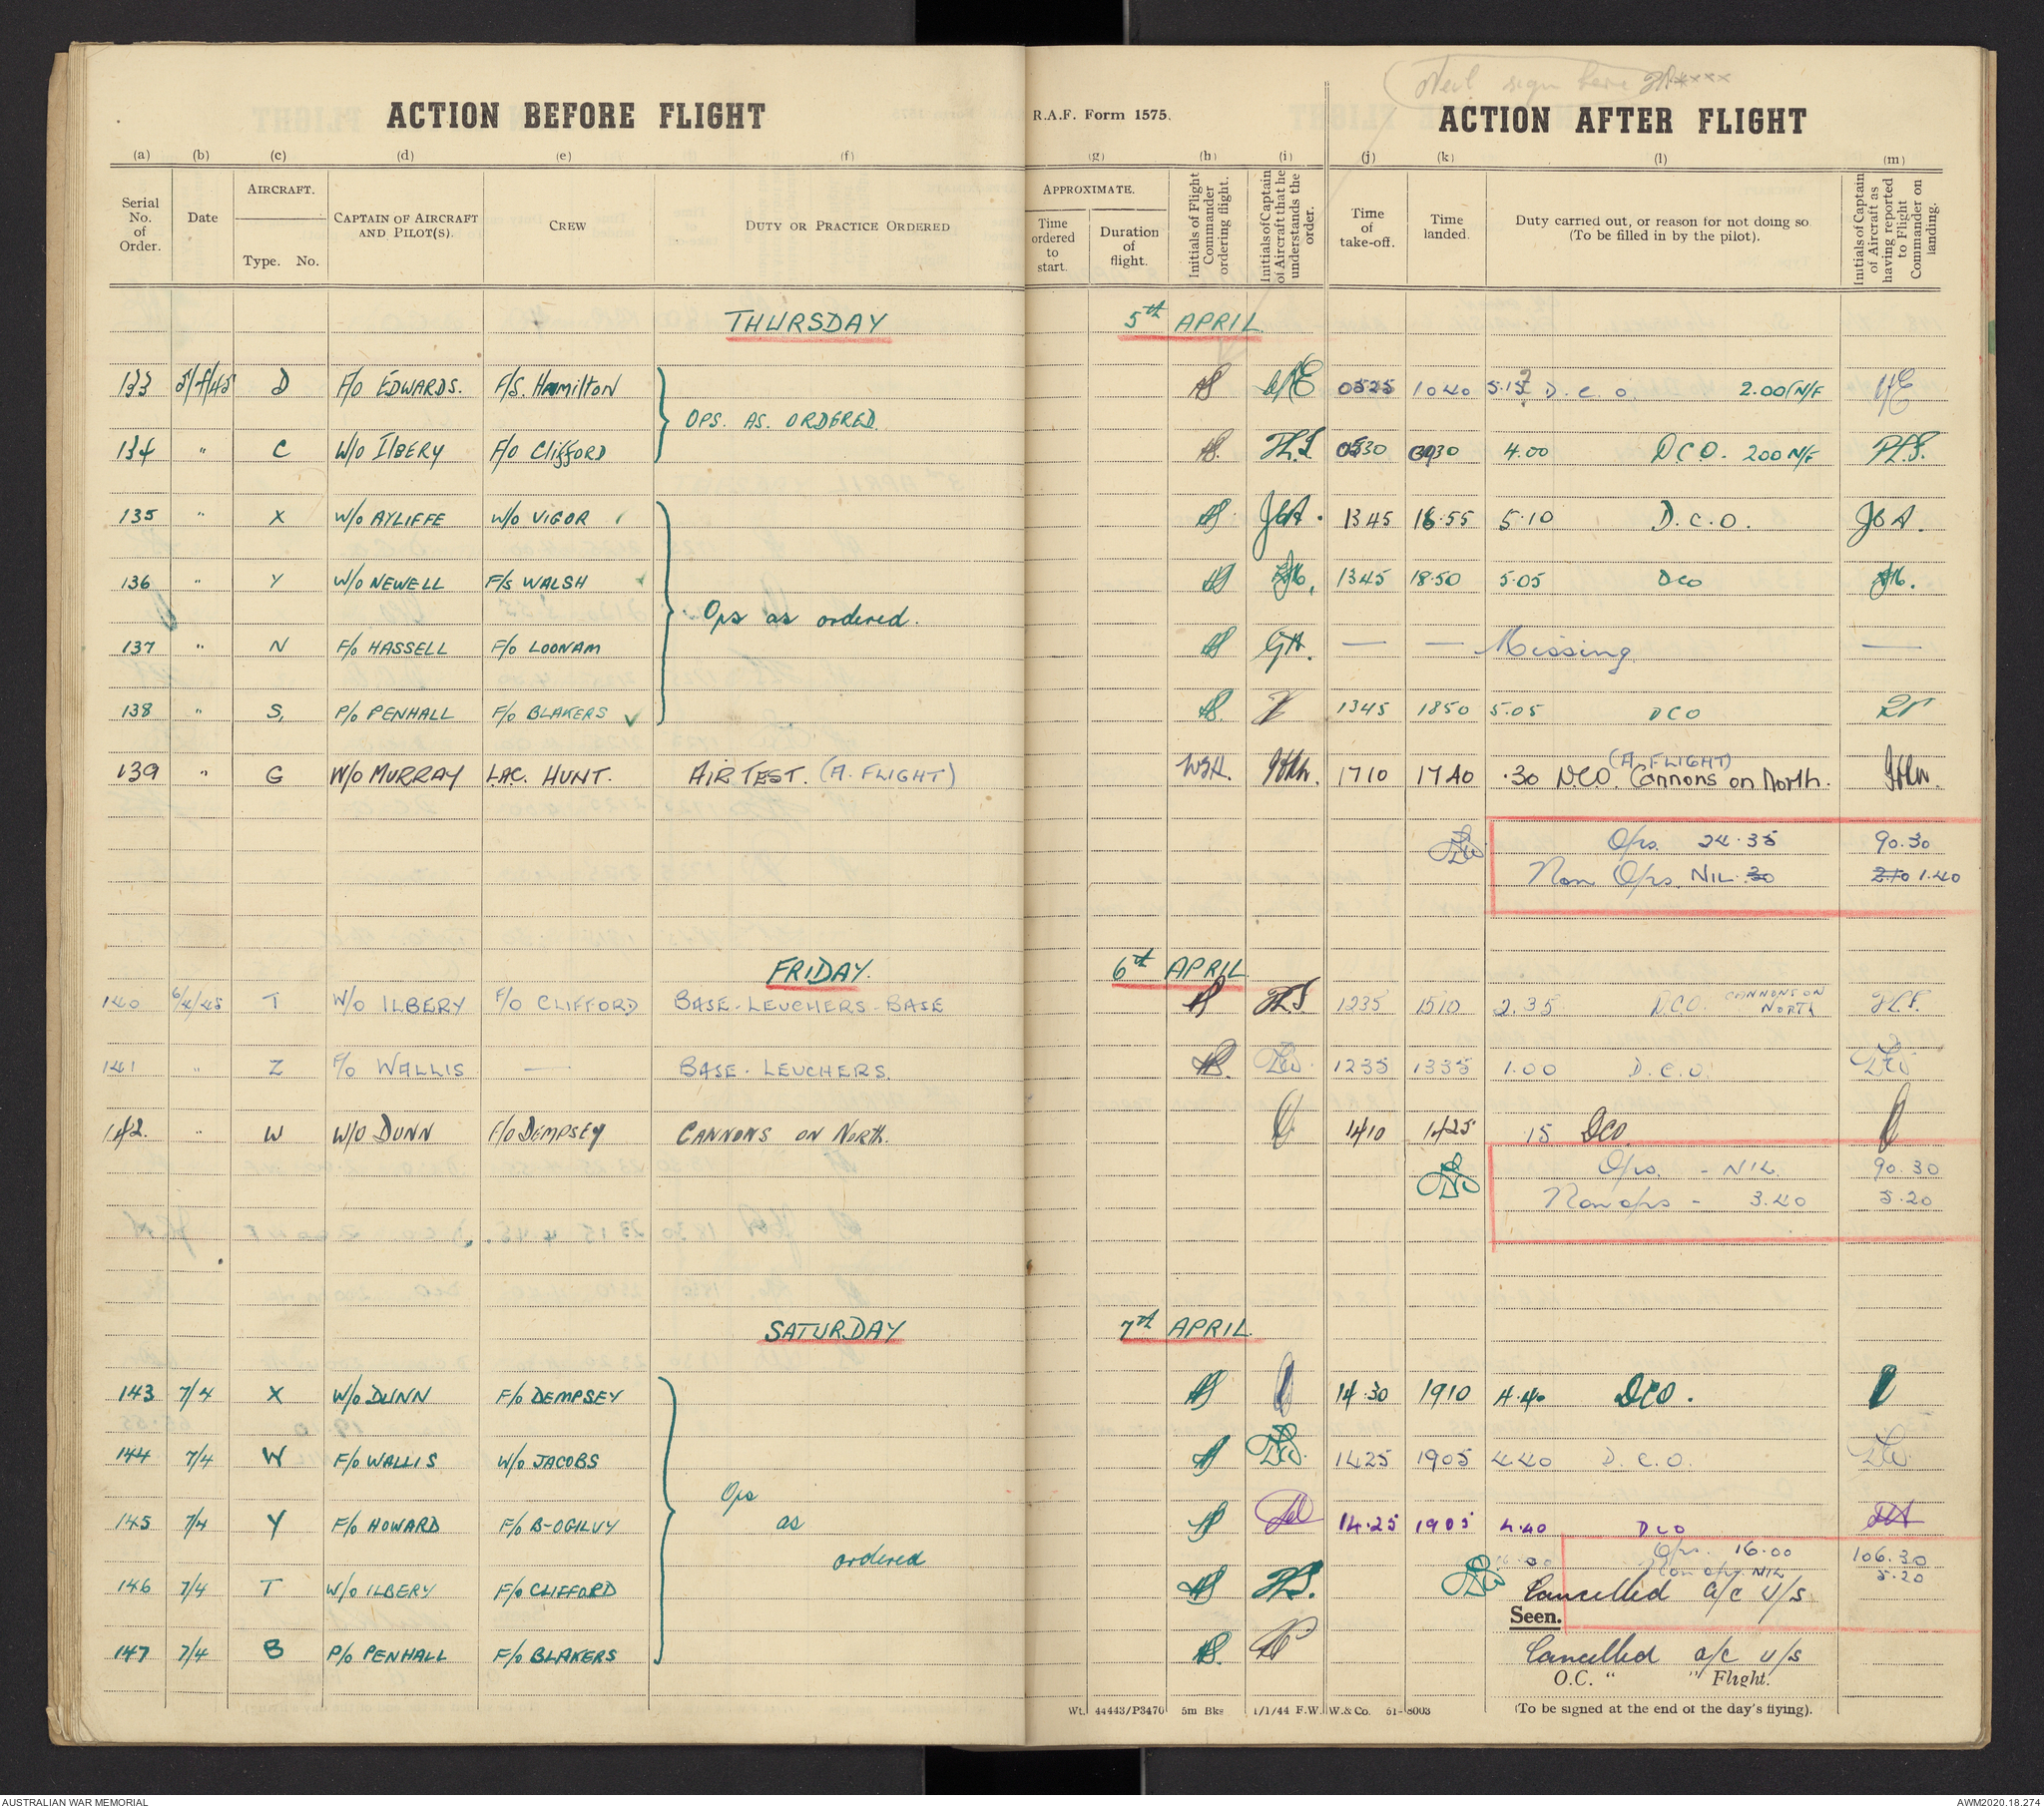 Neil sign here
ACTION BEFORE FLIGHT
R.A.F. Form 1575.
ACTION AFTER FLIGHT
(a) (b) (c) (d) (e) (f) (g) (h) (i) (j) (k) (l) (m)
Serial No. of Order.
Date
AIRCRAFT.
Type. No.
CAPTAIN OF AIRCRAFT AND PILOT(S).
CREW
DUTY OR PRACTICE ORDERED
APPROXIMATE.
Time ordered to start.
Duration of flight.
Initials of Flight Commander ordering flight.
Initials of Captain of Aircraft that he understands the order.
Time of take-off.
Time landed.
Duty carried out, or reason for not doing so (To be filled in by the pilot).
Initials of Captain of Aircraft as having reported to Flight Commander on landing.
THURSDAY 5th APRIL
133 5/4/45 D F/O EDWARDS. F/S. Hamilton 0525 1040 5.15 D.C.O. 2.00 N/F
OPS. AS. ORDERED.
134 " C W/O ILBERY F/O Clifford 0530 0930 4.00 D.C.O. 200 N/F
135 " X W/O AYLIFFE W/O VIGOR 1345 18.55 5.10 D.C.O.
136 " Y W/O NEWELL F/S WALSH 1345 18.50 5.05 DCO
Ops as ordered.
137 " N F/O HASSELL F/O LOONAM GH. — — Missing —
138 " S, P/O PENHALL F/O BLAKERS 1345 1850 5.05 DCO
139 " G W/O MURRAY LAC. HUNT. AIR TEST. (A. FLIGHT) 1710 1740 .30 DCO. Cannons on North. (A. FLIGHT)
Ops. 24.35 90.30
Non Ops. NIL 30 2.10 1.40
FRIDAY. 6th APRIL
140 6/4/45 T W/O ILBERY F/O CLIFFORD BASE-LEUCHERS-BASE 1235 1510 2.35 DCO. CANNONS ON NORTH
141 " Z F/O WALLIS — BASE-LEUCHERS. 1235 1335 1.00 D.C.O.
142. " W W/O DUNN F/O DEMPSEY CANNONS ON NORTH. 1410 1425 15 DCO.
Ops. - NIL. 90.30
Non ops - 3.40 5.20
SATURDAY 7th APRIL
143 7/4 X W/O DUNN F/O DEMPSEY 14.30 1910 4.40 DCO.
144 7/4 W F/O WALLIS W/O JACOBS 1425 1905 4.40 D.C.O.
Ops
145 7/4 Y F/O HOWARD F/O B-OGILVY as 14.25 1905 4.40 DCO
Ops. 16.00 106.30
ordered
Non ops. NIL 5.20
146 7/4 T W/O ILBERY F/O CLIFFORD Cancelled a/c U/S
Seen.
147 7/4 B P/O PENHALL F/O BLAKERS Cancelled a/c U/S
O.C. " " Flight.
Wt. 44443/P3470 5m Bks 1/1/44 F.W. W. & Co. 51-8003
(To be signed at the end of the day's flying).
AUSTRALIAN WAR MEMORIAL
AWM2020.18.274